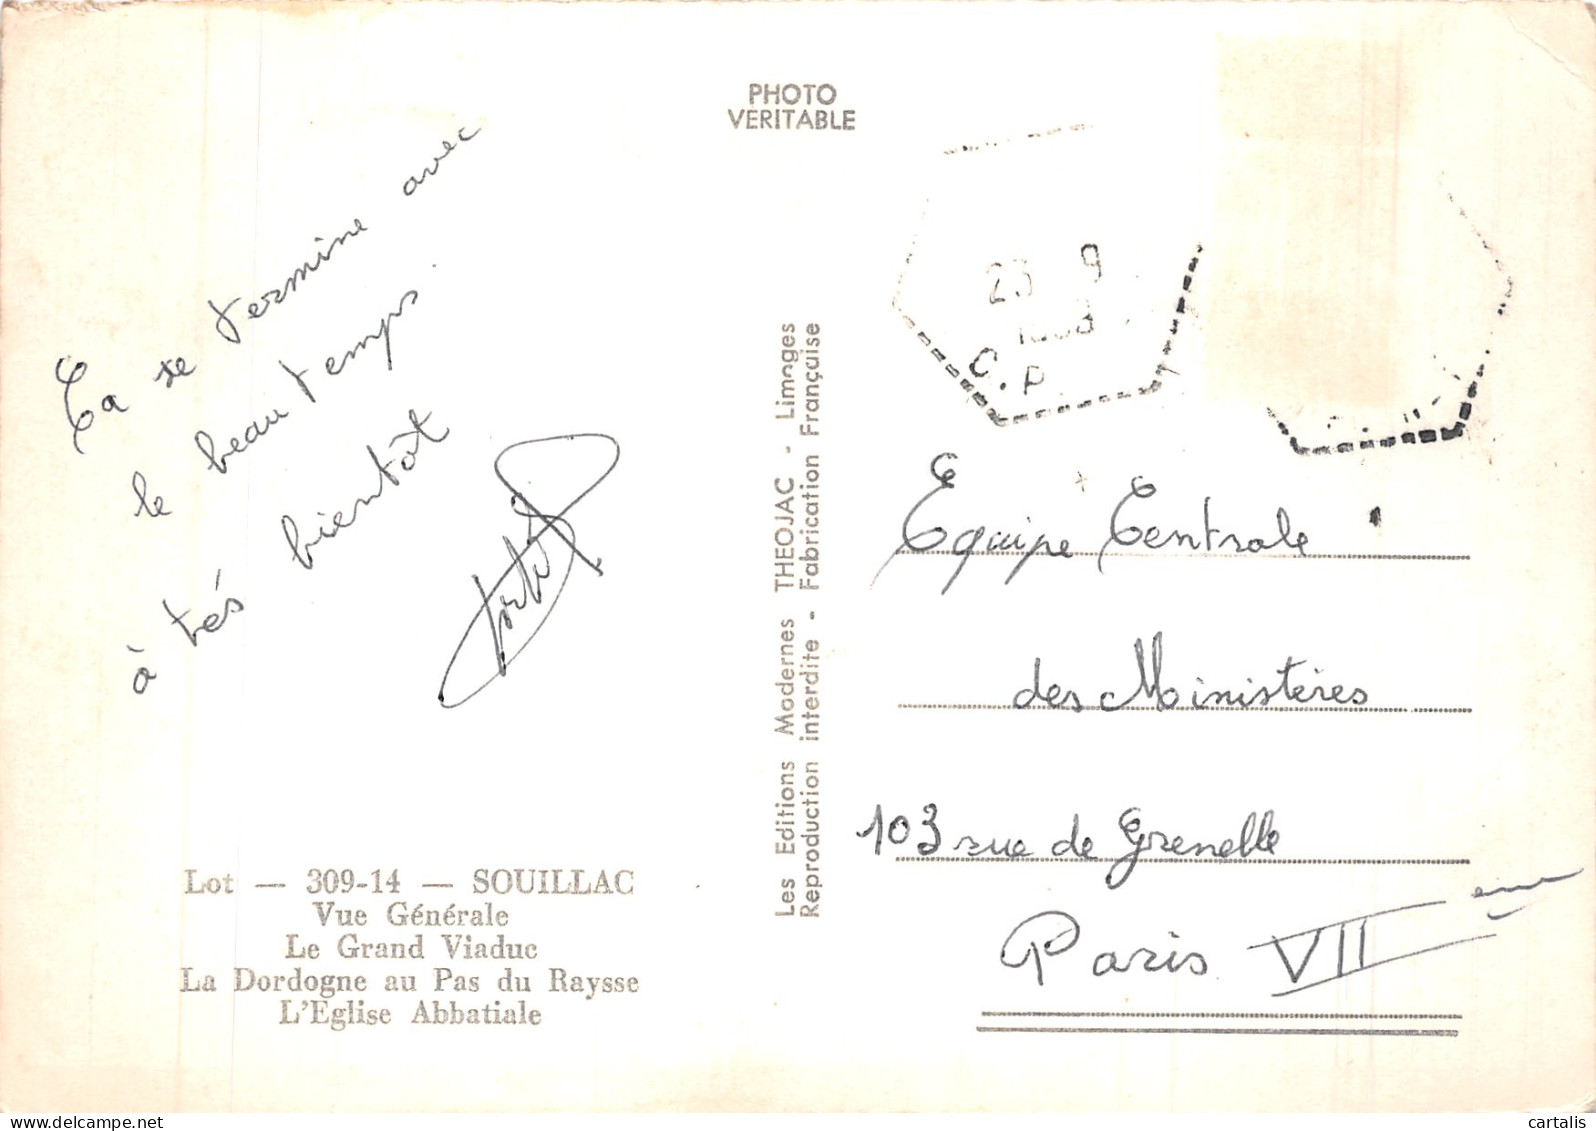 PHOTO
VERITABLE
Ça se termine avec
le beau temps.
à très bientôt
Lot — 309-14 — SOUILLAC
Vue Générale
Le Grand Viaduc
La Dordogne au Pas du Raysse
L'Eglise Abbatiale
Les Editions Modernes THEOJAC - Limoges
Reproduction interdite - Fabrication Française
23 9
C.P
Equipe Centrale
des Ministères
103 rue de Grenelle
Paris VII eme
cartalis